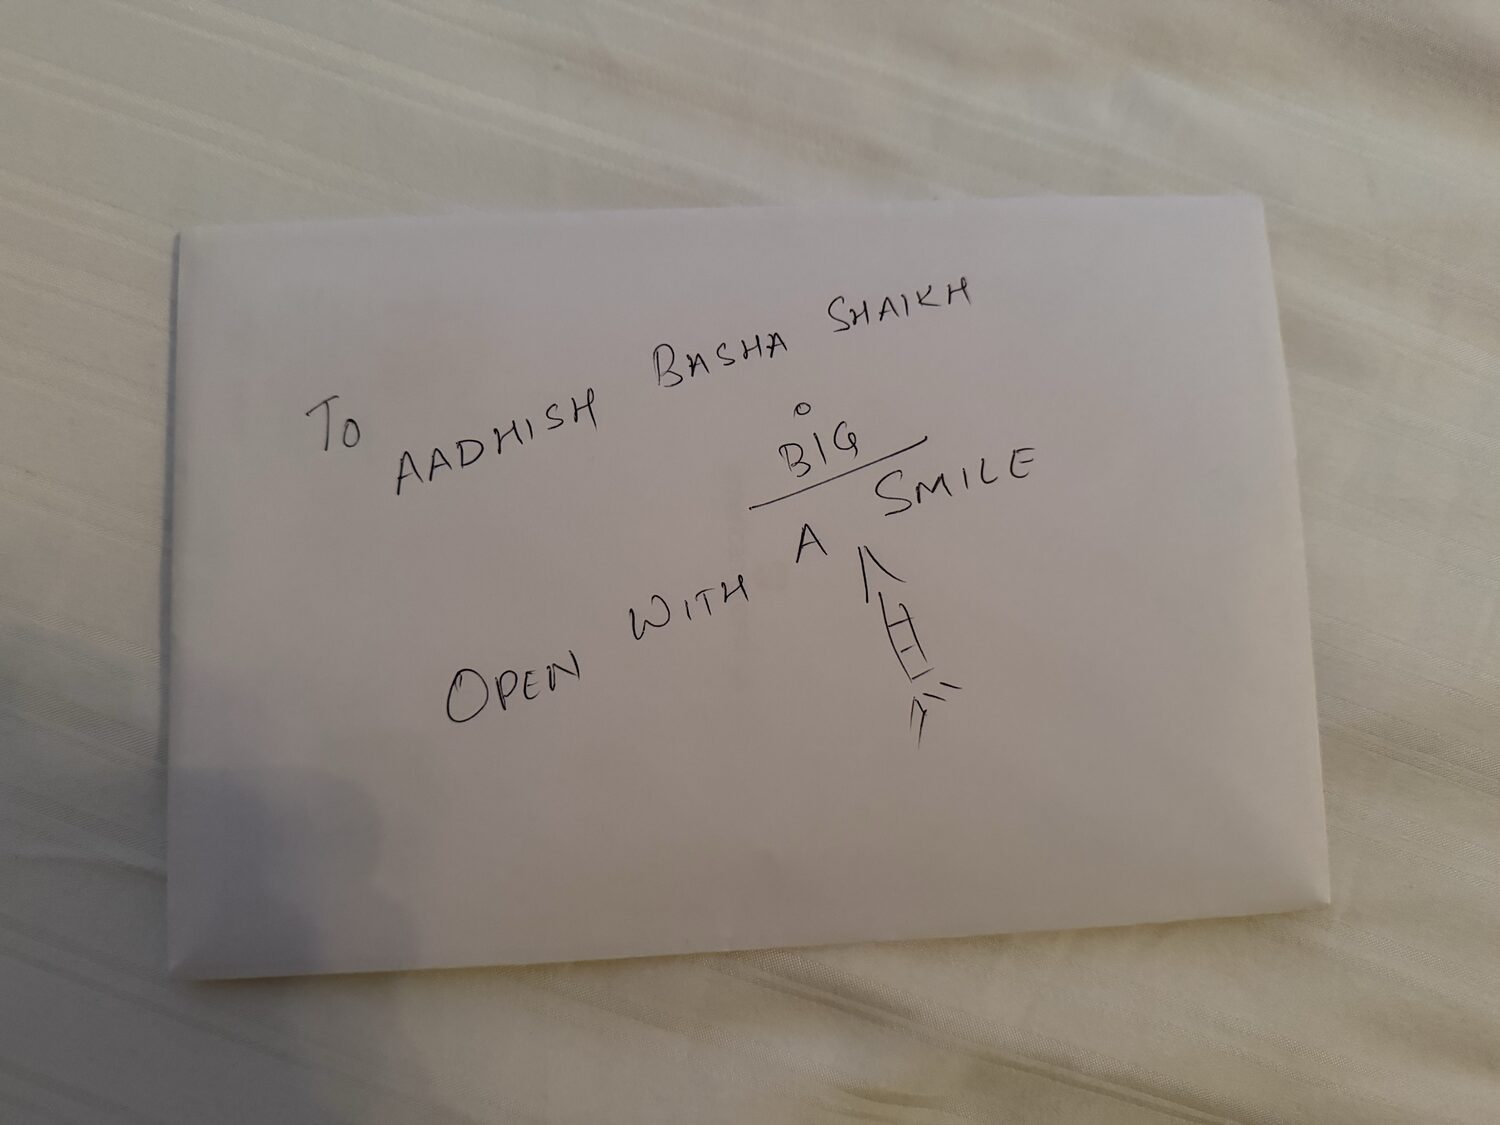 To
AADHISH BASHA SHAIKH
BIG
OPEN WITH A SMILE